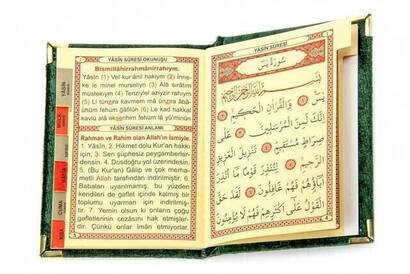 YÂSÎN SÛRESİ OKUNUŞU
Bismillâhirrahmânirrahıym.
Yâsîn (1) Vel kur'ânil hakiym (2) İnne-
ke le minel murseliyn (3) Alâ sırâtım
müstekıym (4) Tenziylel aziyzir rahıym
(5) Li tünzira kavmem mâ ünzira âbâ-
ühüm fehüm ğâfilûn (6) Le kad hakkal
kavlü alâ ekserihim fehüm lâ yü'minûn
YÂSÎN SÛRESİ ANLAMI
Rahman ve Rahim olan Allah'ın İsmiyle.
1. Yâsîn, 2. Hikmet dolu Kur'an hakkı
için, 3. Sen şüphesiz peygamberler-
densin. 4. Dosdoğru yol üzerindesin.
5. (Bu Kur'an) Gâlip ve çok merha-
metli Allah tarafından indirilmiştir. 6.
Babaları uyarılmamış, bu yüzden
kendileri de gaflet içinde kalmış bir
toplumu uyarman için indirilmiş-
tir. 7. Yemin olsun ki onların çoğu
gafletlerinin cezasını hak etmişlerdir.
Çünkü onlar iman etmiyorlar
YÂSİN
MÜLK
NEBE
CUMA
DUA
YÂSÎN SÛRESİ
سُورَةُ يٰسٓ
بِسْمِ اللّٰهِ الرَّحْمٰنِ الرَّحِيمِ
يٰسٓ ۞ وَالْقُرْاٰنِ الْحَكِيمِ ۞
اِنَّكَ لَمِنَ الْمُرْسَلِينَ ۞ عَلٰى
صِرَاطٍ مُسْتَقِيمٍ ۞ تَنْزِيلَ الْعَزِيزِ
الرَّحِيمِ ۞ لِتُنْذِرَ قَوْمًا مَٓا اُنْذِرَ
اٰبَٓاؤُ۬هُمْ فَهُمْ غَافِلُونَ ۞ لَقَدْ حَقَّ
الْقَوْلُ عَلٰٓى اَكْثَرِهِمْ فَهُمْ لَا يُؤْمِنُونَ